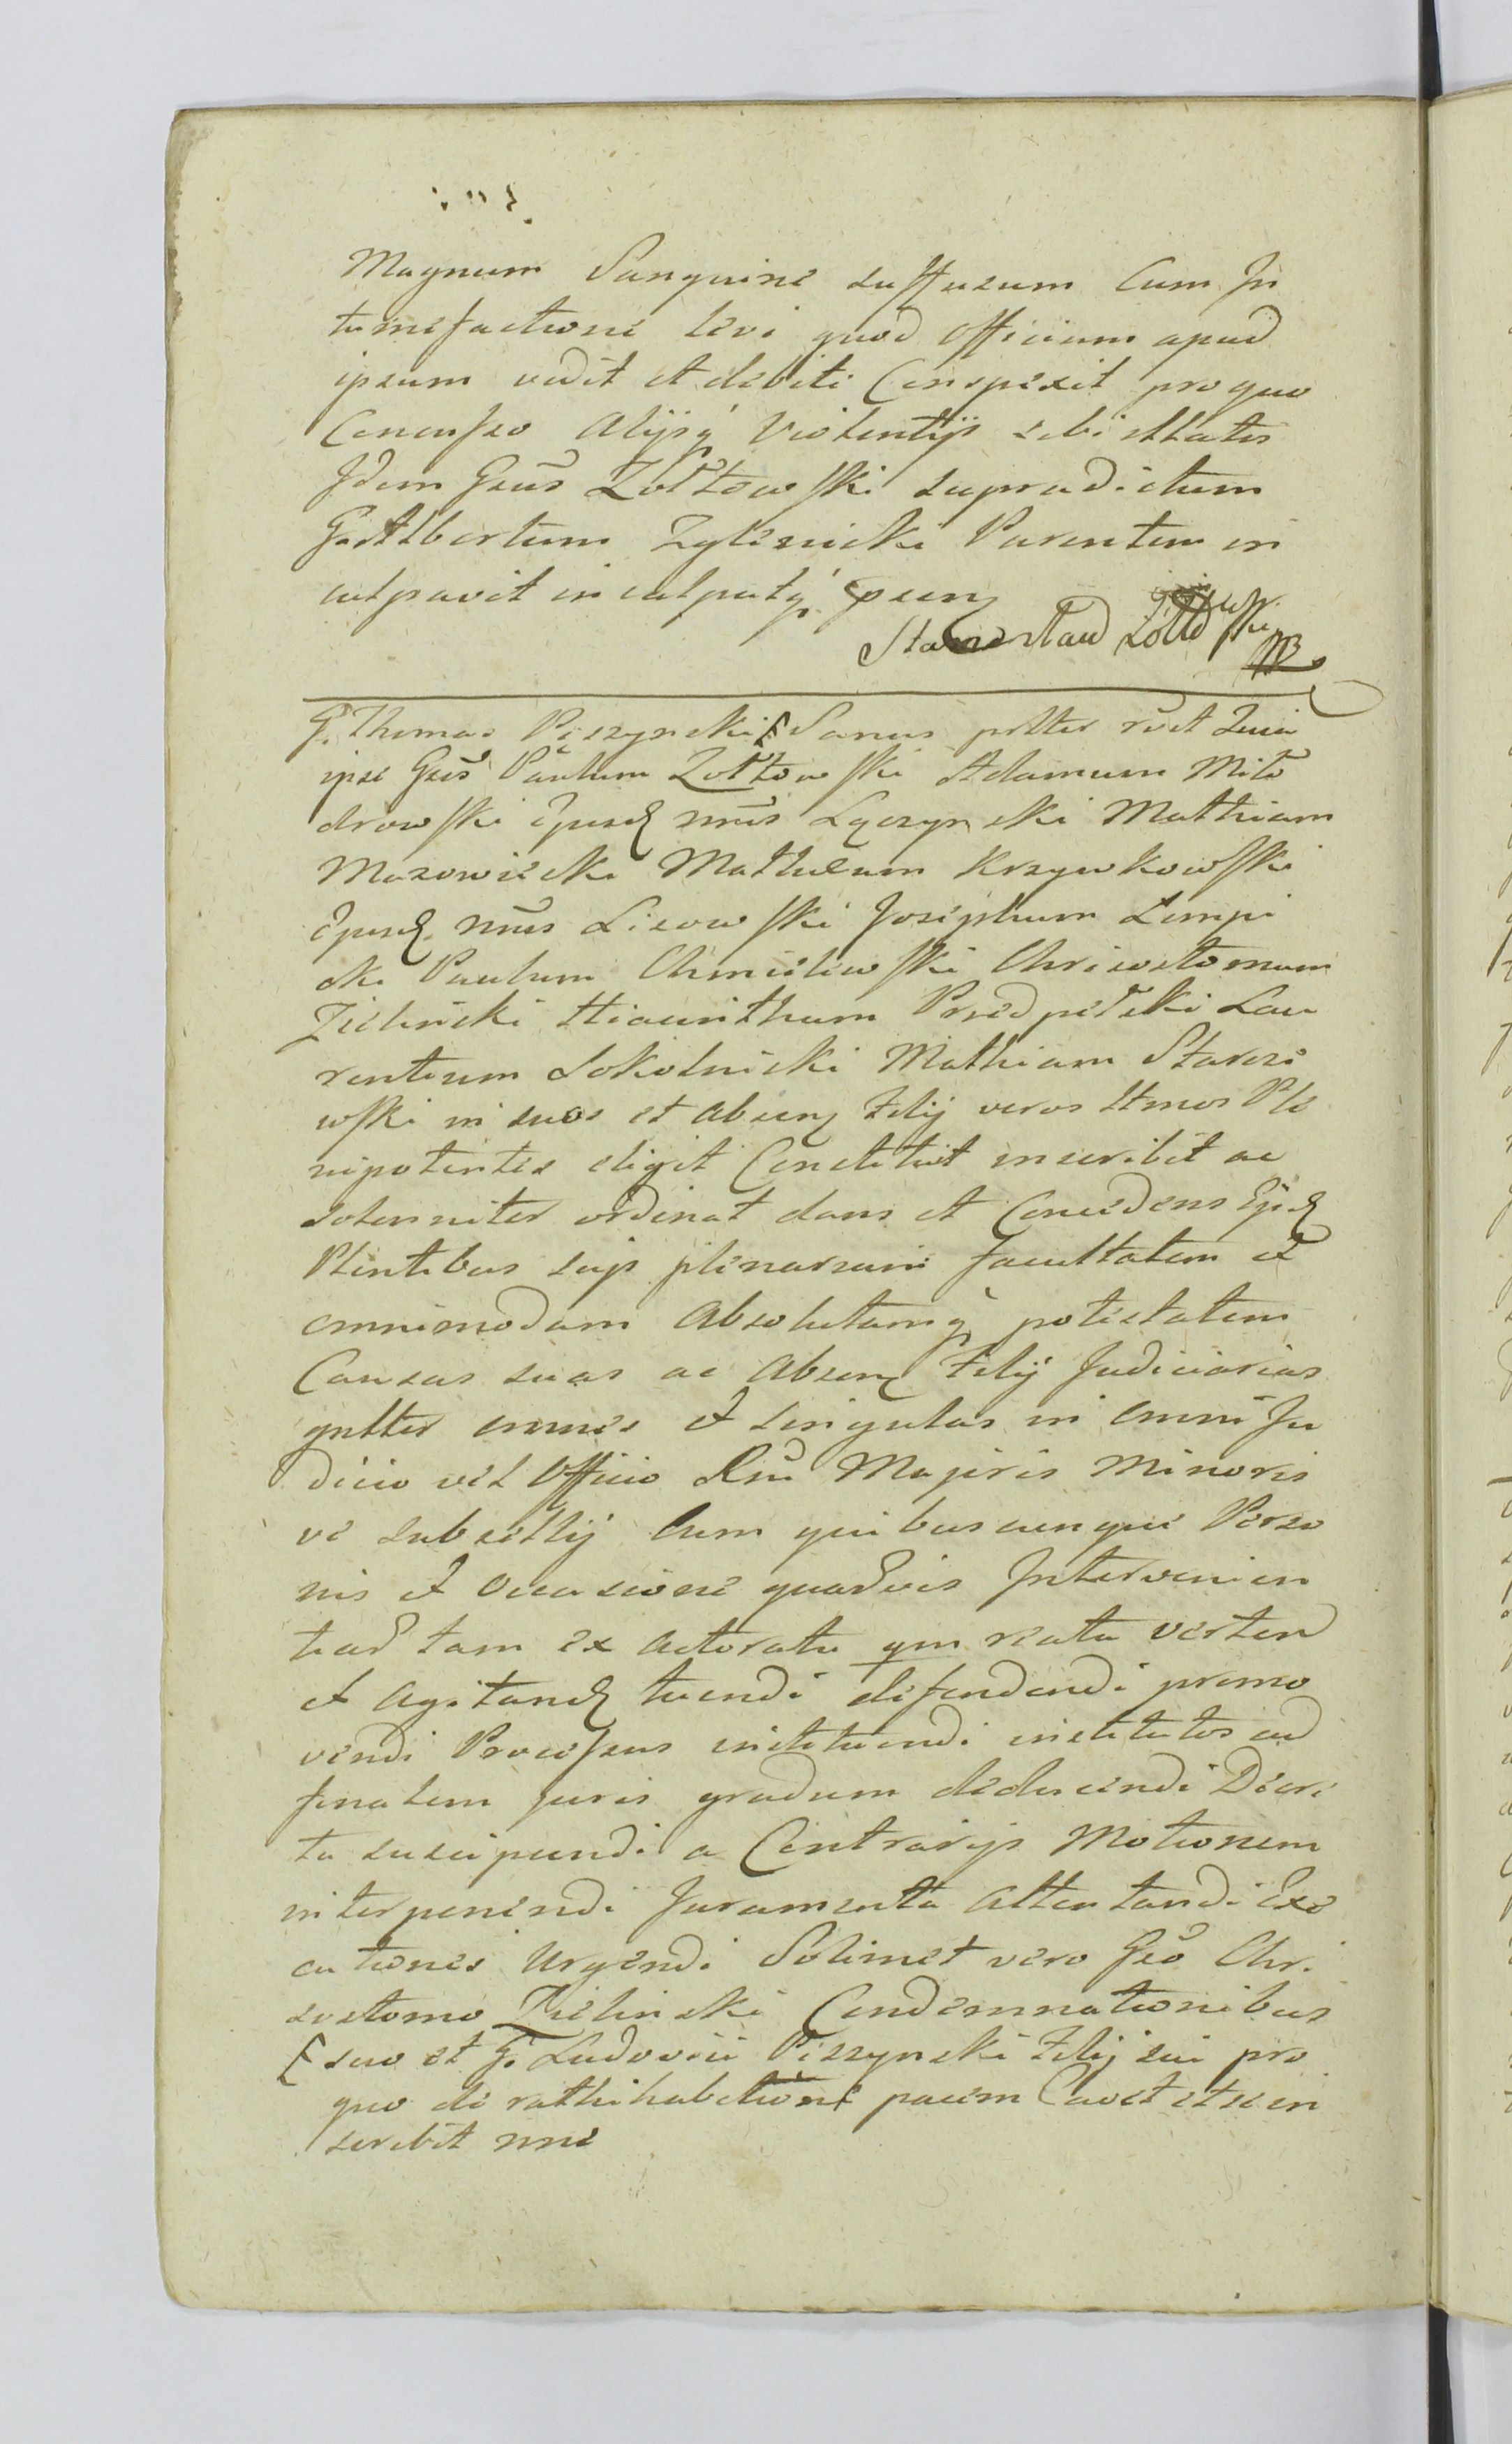 Magnum Sanguine suffusum Cum In
tumefactione levi quod Officium apud
ipsum vidit et debite Conspexit pro quo
Concusso Alijsq Violentijs sibi illatis
Idem Gsus Zołtowski supradictum
G. Albertum Zglenicki Parentem in
culpavit inculpatq psens
Stanisław Zołtowski
mp
G. Thomas Pęszynski Sanus pltter rcit Quia
ipse Gsos Paulum Zołtowski Adamum Miło
drowski Ejusd nnis Łączynski Mathiam
Mazowiecki Matheum Krzywkowski
Ejusd. nnis Lisowski Josephum Lempi
cki Paulum Chmielewski Chrisostomum
Zielinski Hiacinthum Przedpełski Lau
rentium Sokolnicki Mathiam Starozi
wski in suos et absens Filij veros ltmos Ple
nipotentes eligit Constituit inscribit ac
solenniter ordinat dans et Concedens Ejsd
Plentibus suis plenariam facultatem et
omnimodam Absolutamq potestatem
Causas suas ac absens Filij Judiciarias
gnltter omnes et singulas in omni Ju
dicio vel Officio Rni Majoris Minoris
ve subsellij Cum quibuscunque Perso
nis et Occasione quarvis Intervenien
tiad tam ex actoratu qm reatu verten
et Agitand tuendi defendendi promo
vendi Processus instituendi institutos ad
finalem juris gradum deducendi Decre
ta suscipiendi a Contrarijs Motionem
interponendi Juramenta Attentandi Exe
cutiones Urgendi Solimet vero Gso Chri
sostomo Zielinski Condemnationibus
suo et G. Ludovici Pęszynski Filij sui pro
quo de rathihabitione pacem Cavet et se in
scribit nne